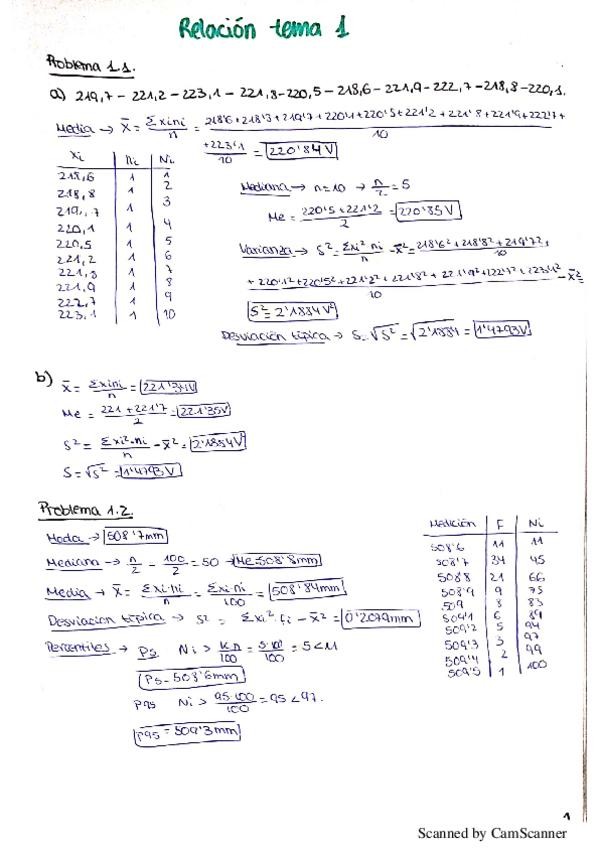 Relación tema 1
Problema 1.1.
a) 219,7 - 221,2 - 223,1 - 221,8 - 220,5 - 218,6 - 221,9 - 222,7 - 218,8 - 220,1.
Media → X̄ = Σxini/n = 218'6+218'8+219'7+220'1+220'5+221'2+221'8+221'9+222'7+/10
+223'1/10 = 220'84V
Xi ni Ni
218,6 1 1
218,8 1 2
219,7 1 3
220,1 1 4
220,5 1 5
221,2 1 6
221,8 1 7
221,9 1 8
222,7 1 9
223,1 1 10
Mediana → n=10 → n/2 = 5
Me = 220'5+221'2/2 = 220'85V
Varianza → S² = Σxi² ni/n - X̄² = 218'6²+218'8²+219'7²+/10
+ 220'1²+220'5²+221'2²+221'8²+221'9²+222'7²+223'1²/10 - X̄² =
S² = 2'1884V²
Desviación típica → S = √S² = √2'1884 = 1'4793V
b) X̄ = Σxini/n = 221'34V
Me = 221+221'7/2 = 221'35V
S² = Σxi²·ni/n - X̄² = 2'1884V
S = √S² = 1'4793V
Problema 1.2.
Moda → 508'7mm
Mediana → n/2 - 100/2 = 50 → Me=508'8mm
Media → X̄ = Σxi·ni/n = Σxi·ni/100 = 508'84mm
Desviación típica → S² = Σxi² · fi - X̄² = 0'2079mm
Percentiles → P5 Ni > k·n/100 = 5·100/100 = 5 < 11
P5 = 508'6mm
P95 Ni > 95·100/100 = 95 < 97.
P95 = 509'3mm
Medición F Ni
508'6 11 11
508'7 34 45
508'8 21 66
508'9 9 75
509 8 83
509'1 6 89
509'2 5 94
509'3 3 97
509'4 2 99
509'5 1 100
1
Scanned by CamScanner